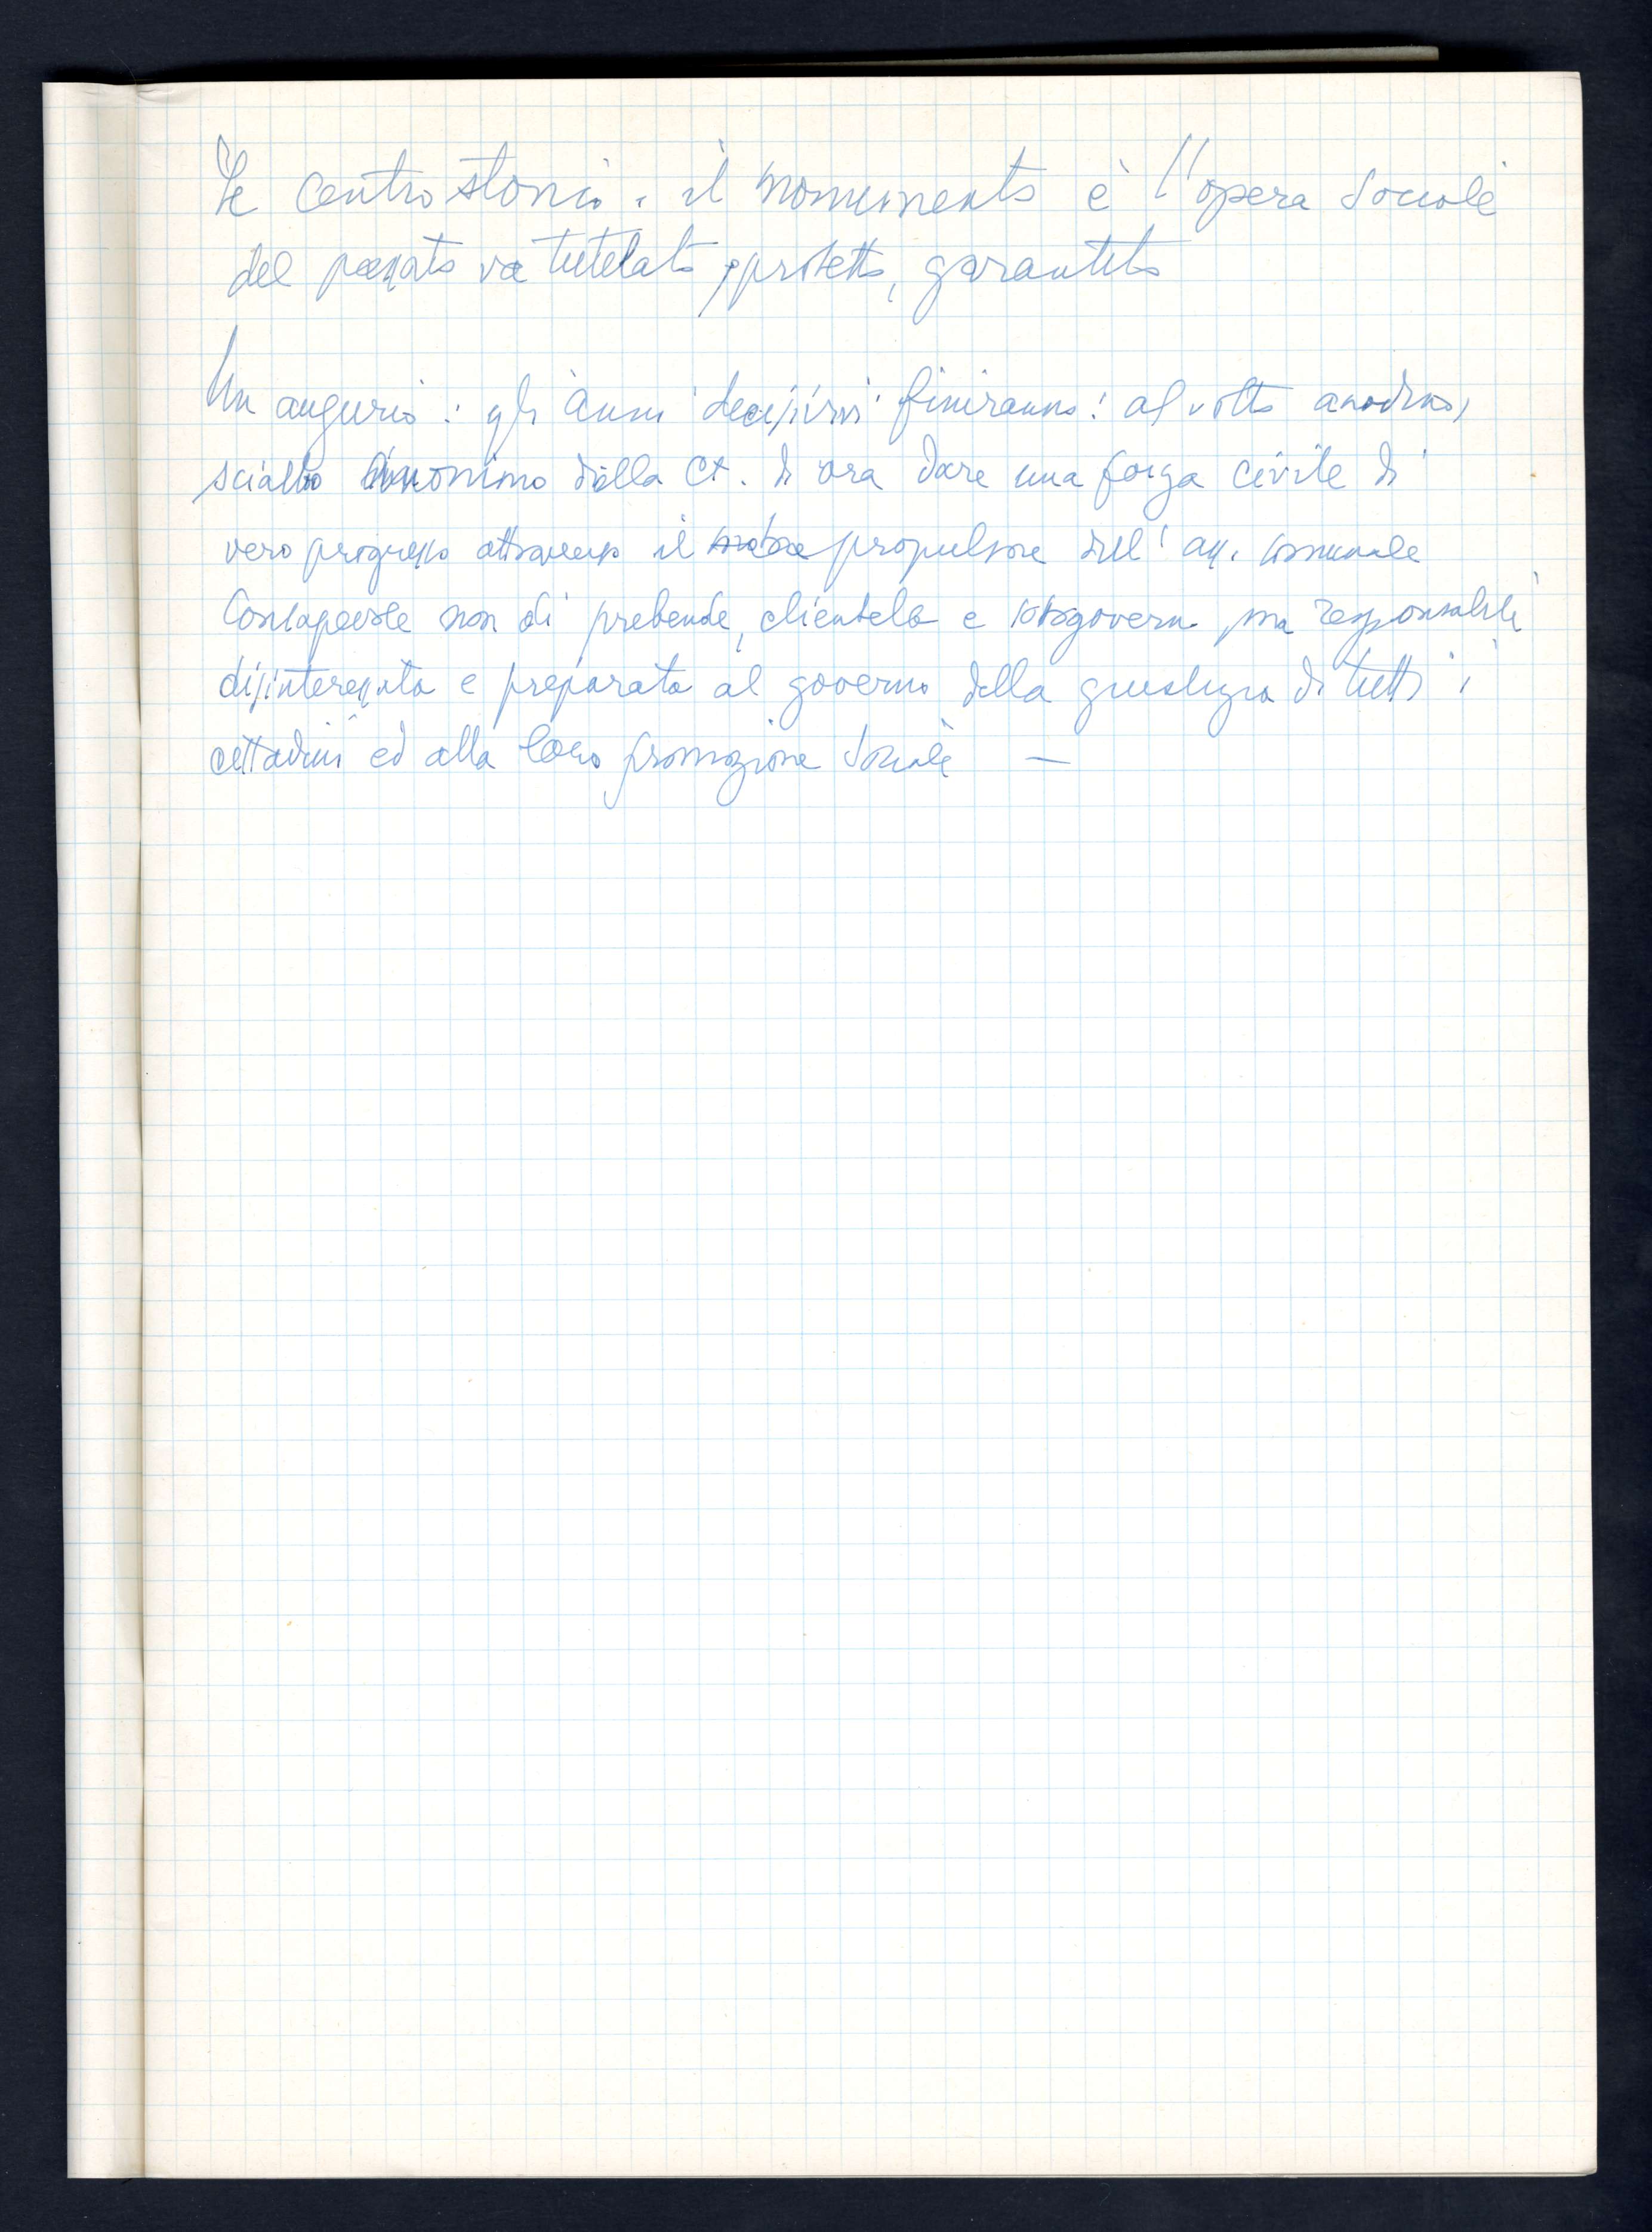 Il centro storico. il monumento è l'opera sociale
del passato va tutelato, protetto, garantito
Un augurio: gli anni decisivi finiranno: al volto anodino,
scialbo anonimo della Ct. di ora dare una forza civile di
vero progresso attraverso il propulsore dell'am. comunale
Consapevole non di prebende, clientela e sottogoverno ma responsabile
disinteressata e preparata al governo della giustizia di tutti i
cittadini ed alla loro promozione sociale —